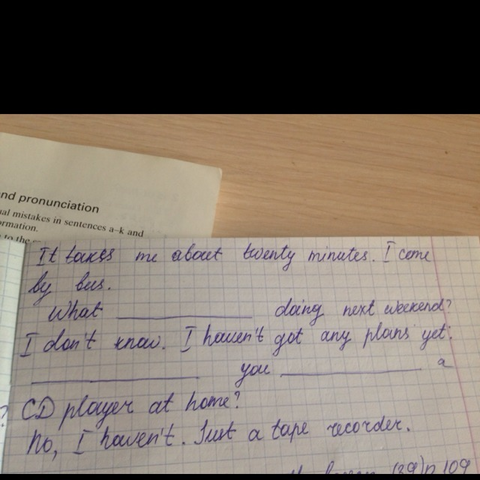 nd pronunciation
al mistakes in sentences a–k and
ormation.
to the
It takes me about twenty minutes. I come
by bus.
What ____________ doing next weekend?
I don't know. I haven't got any plans yet.
____________ you ____________ a
? CD player at home?
No, I haven't. Just a tape recorder.